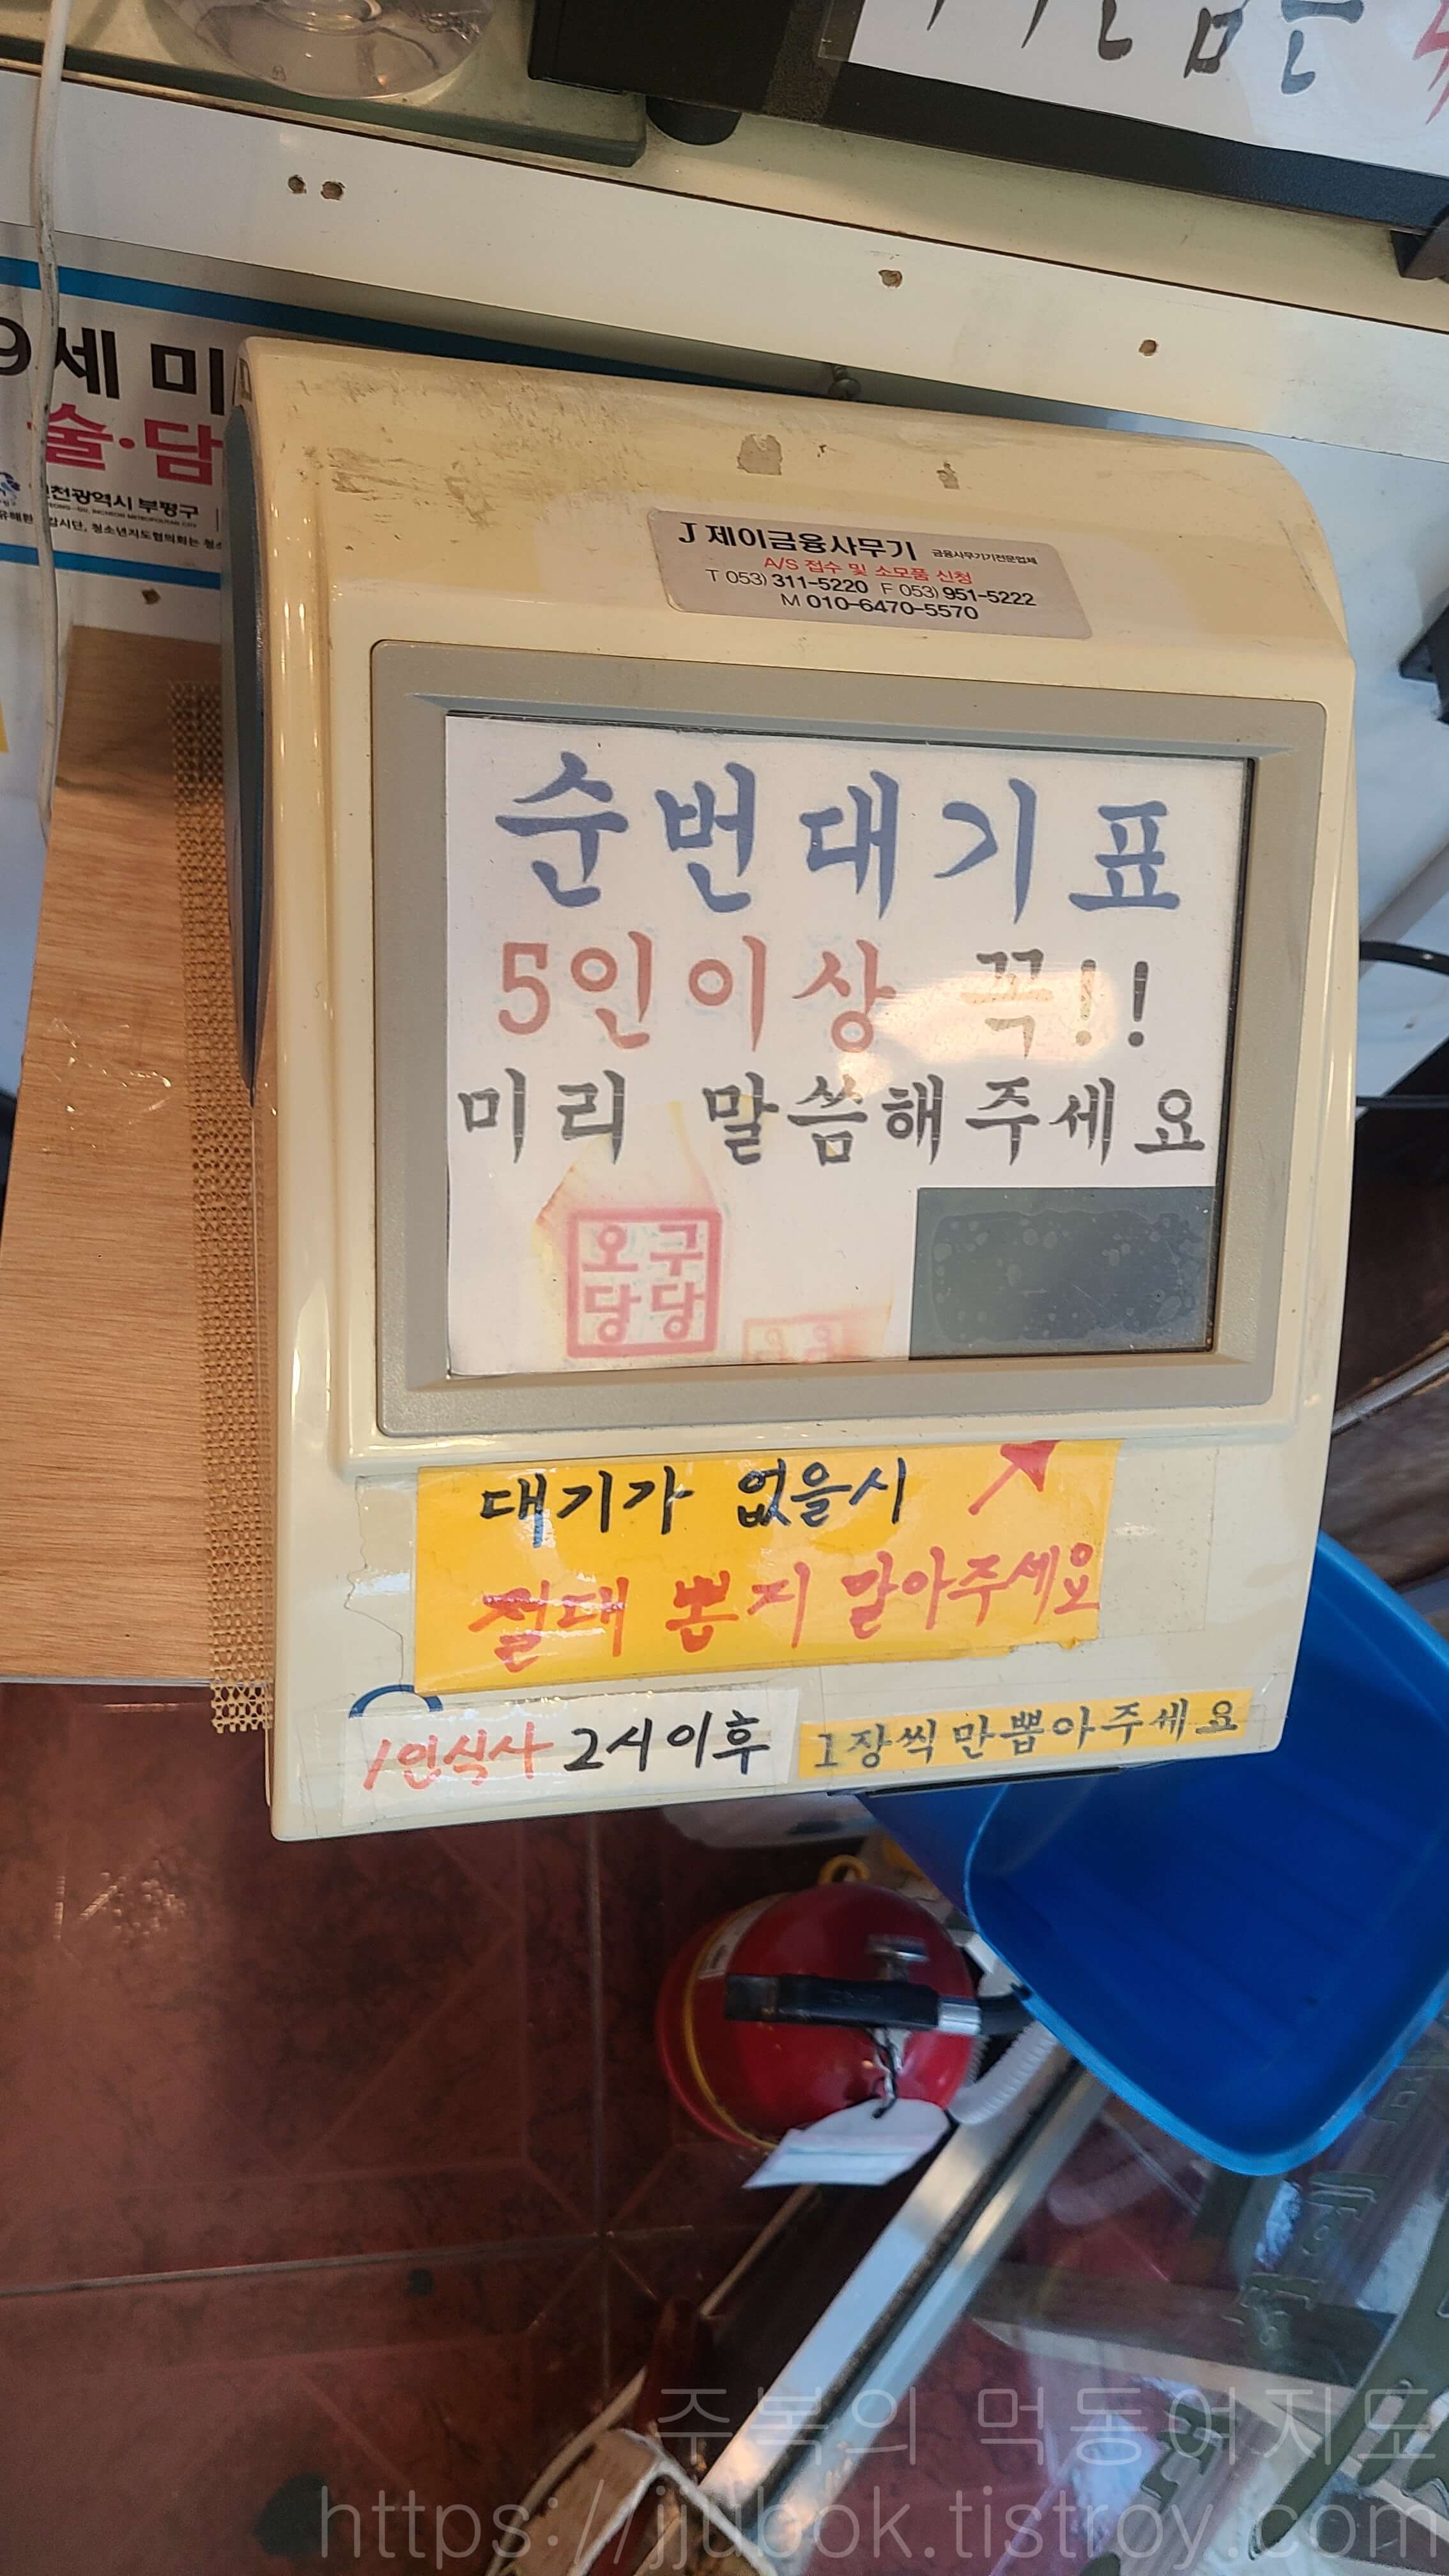 9세 미
술·담
천광역시 부평구
J 제이금융사무기 금융사무기기전문업체
A/S 접수 및 소모품 신청
T 053) 311-5220 F 053) 951-5222
M 010-6470-5570
순번대기표
5인이상 꼭!!
미리 말씀해주세요
오구
당당
대기가 없을시
절대 뽑지 말아주세요
1인식사 2시이후
1장씩만뽑아주세요
주복의 먹동여지도
https://jjubok.tistroy.com